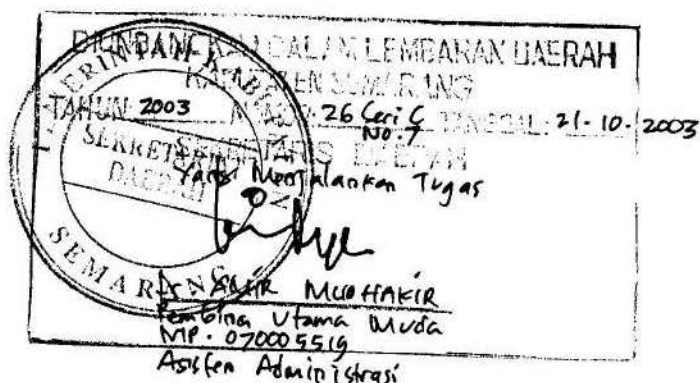 DIUNDANGKAN DALAM LEMBARAN DAERAH
KABUPATEN SEMARANG
TAHUN: 2003 NOMOR: 26 Seri C No.7 TANGGAL: 21-10-2003
SEKRETARIS DAERAH
Yang Menjalankan Tugas
AMIR MUDHAKIR
Pembina Utama Muda
NIP. 070005519
Asisten Administrasi
PEMERINTAH KABUPATEN
SEKRETARIS
DAERAH
SEMARANG